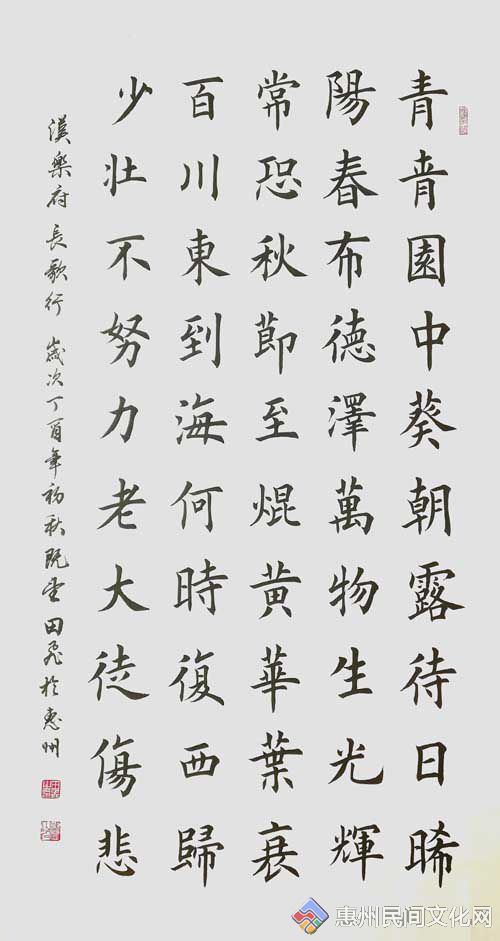 青青園中葵朝露待日晞
陽春布德澤萬物生光輝
常恐秋節至焜黃華葉衰
百川東到海何時復西歸
少壯不努力老大徒傷悲
漢樂府長歌行 歲次丁酉年初秋 田飛於惠州
惠州民间文化网